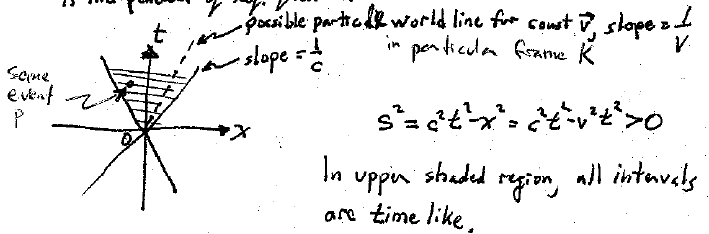 possible particle world line for const v⃗, slope = 1/v
in particular frame K
t
slope = 1/c
some
event
P
O
x
s² = c²t² - x² = c²t² - v²t² > 0
In upper shaded region, all intervals
are time like.